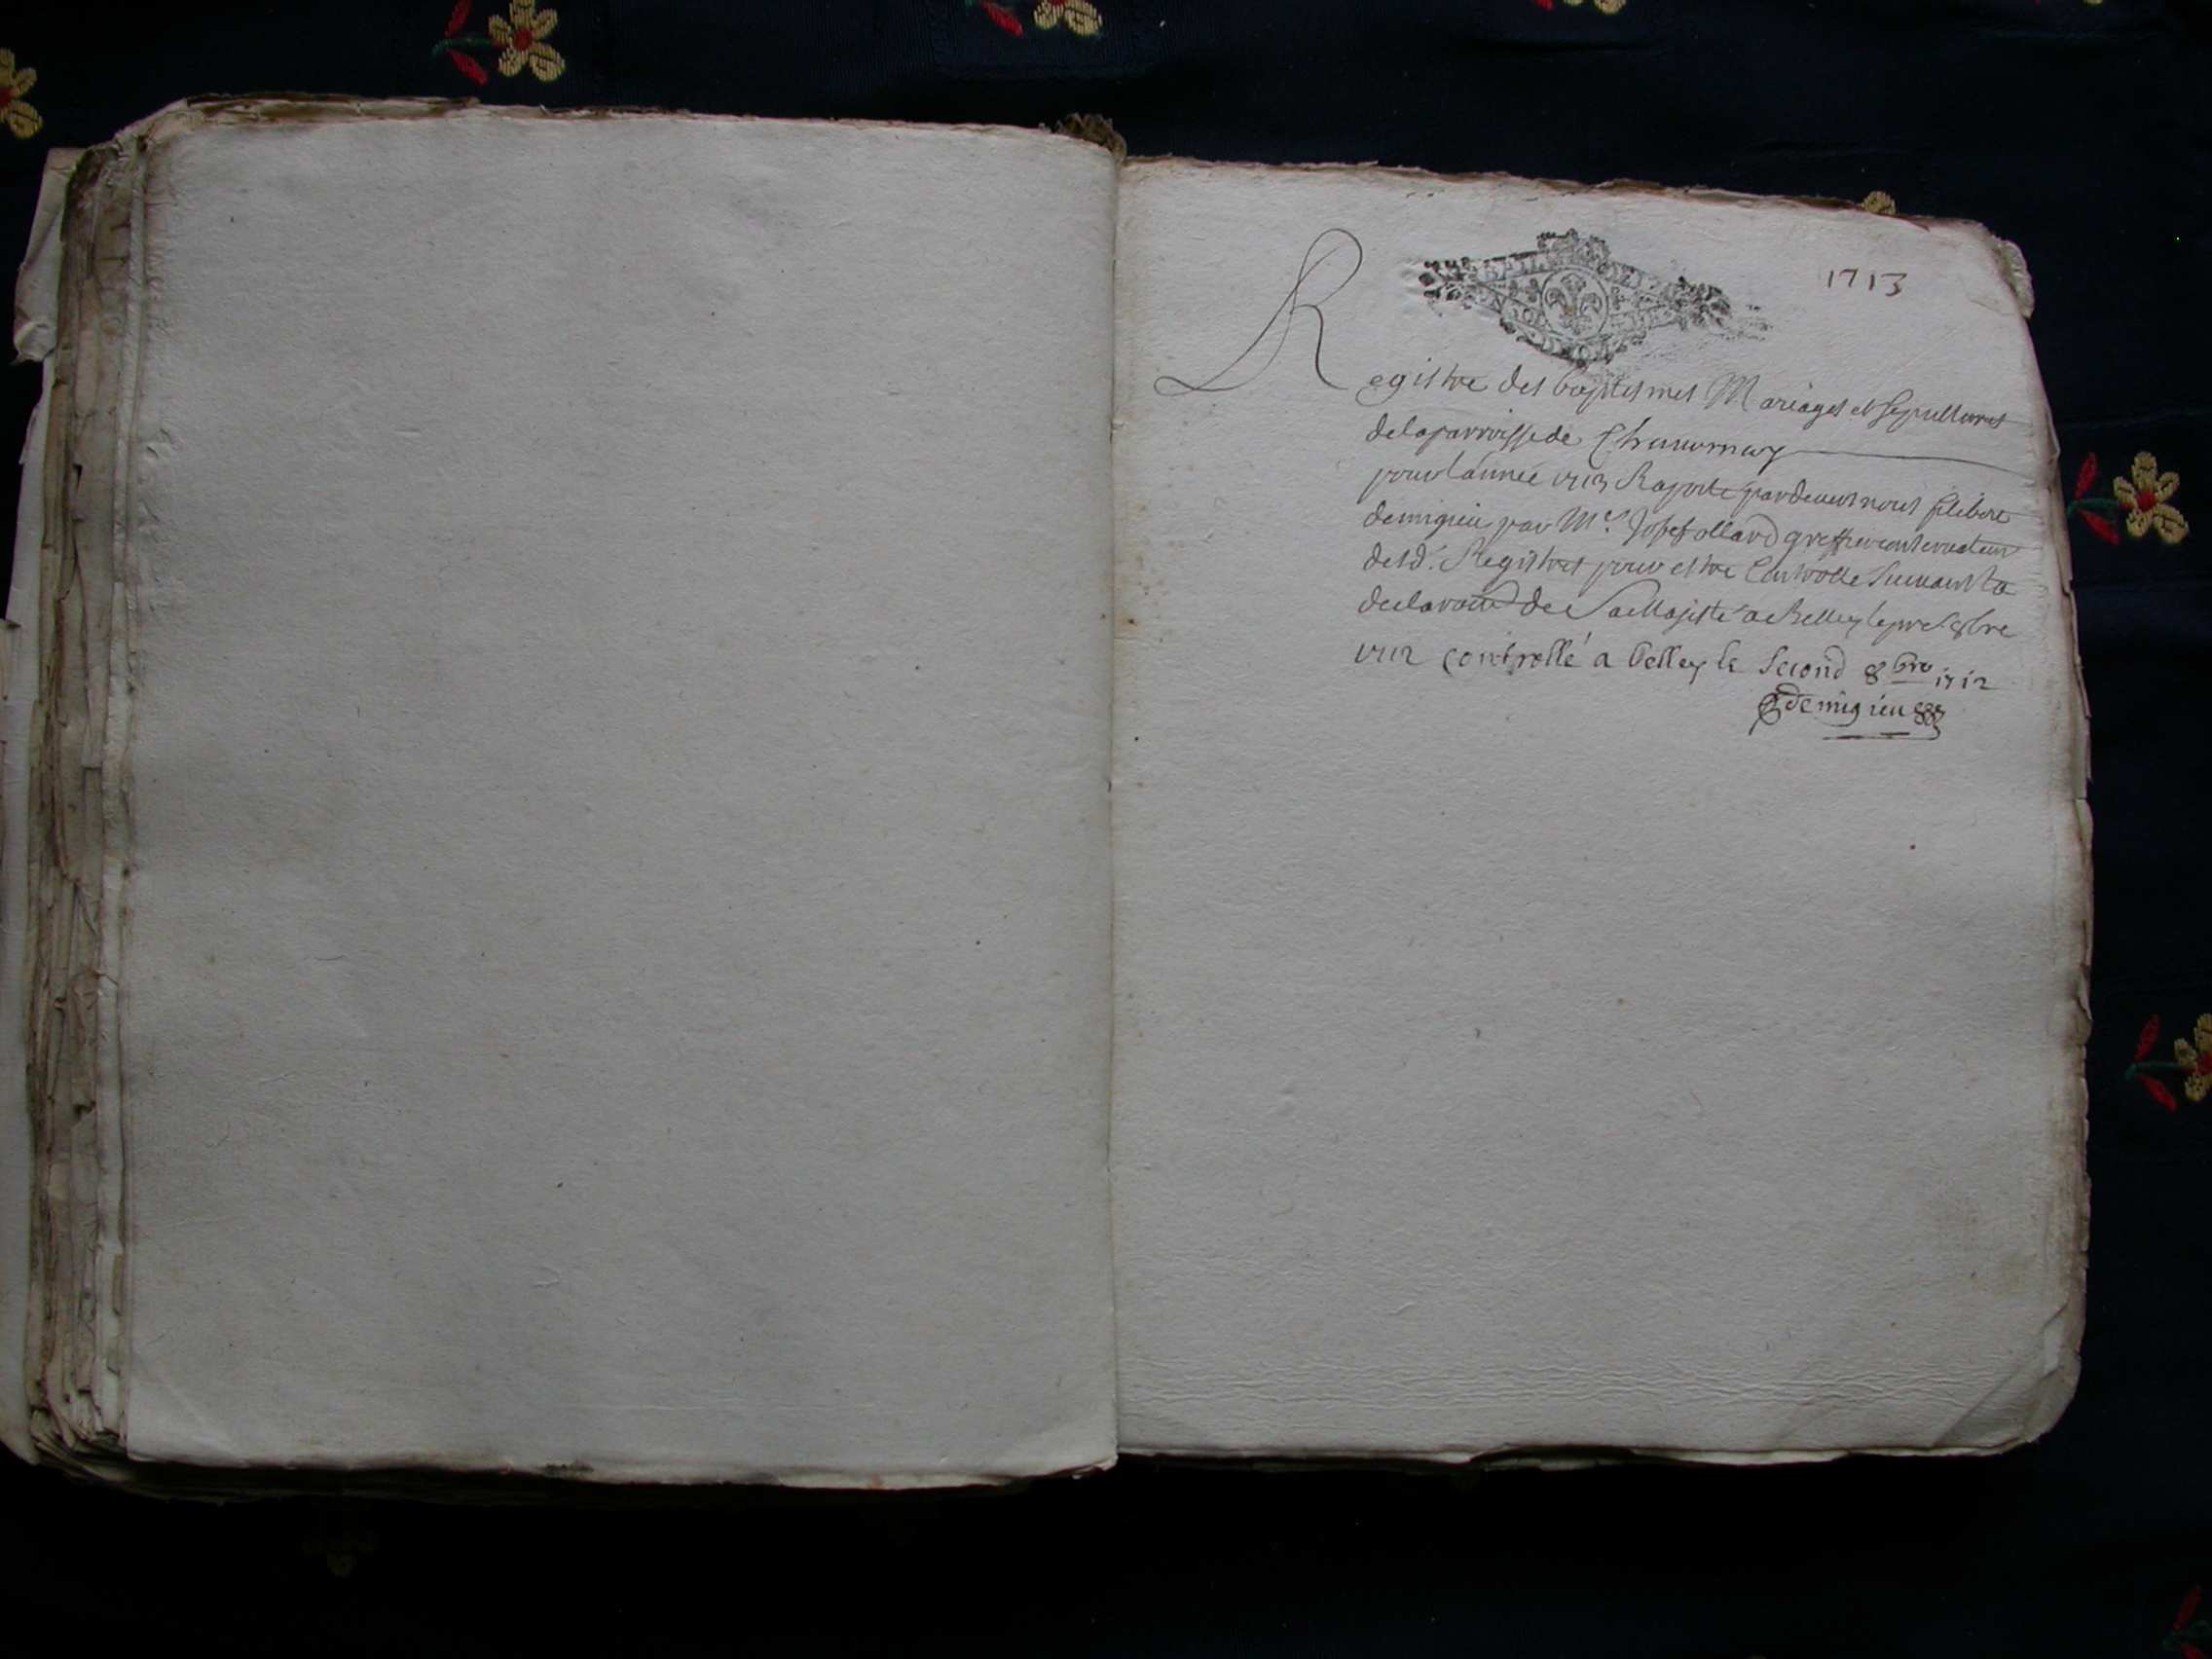 1713
Registre des baptesmes Mariages et sepultures
de la parroisse de
pour l'année 1713 Raporte pardevant nous filibere
demigieu par Me. Josef ollard greffier conservateur
desd. Registres pour estre Controllé suivant la
declaraon de Sa Majesté a Belley le pre 8bre
1712 controllé a belley le second 8bre 1712
demigieu